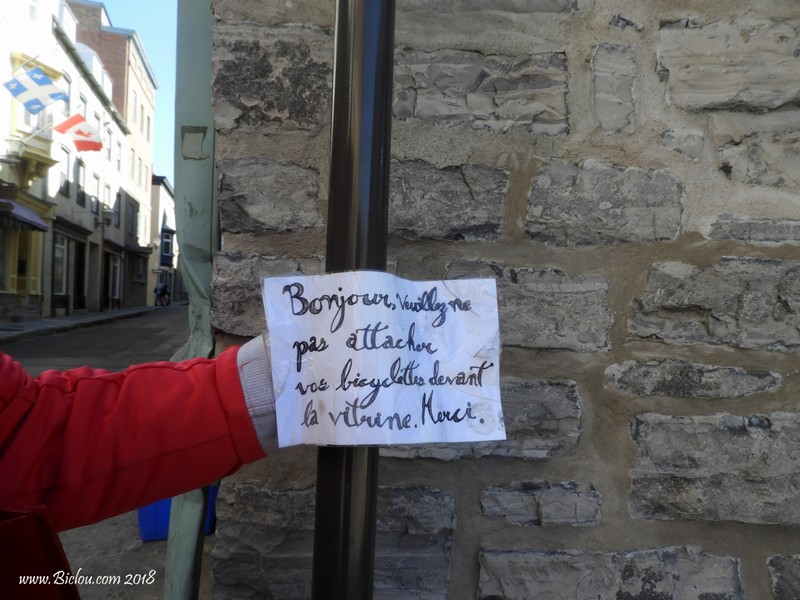 Bonjour, Veuillez ne
pas attacher
vos bicyclettes devant
la vitrine. Merci.
www.Biclou.com 2018